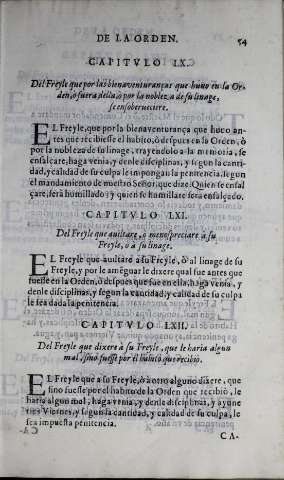 DE LA ORDEN. 54
CAPITVLO LX.
Del Freyle que por las bienauenturanças que huuo en la Or-
den, o fuera della, o por la nobleza de su linage,
se ensoberueciere.
EL Freyle, que por la bienauenturança que huuo an-
tes que recibiesse el habito, ò despues en la Orden, ò
por la nobleza de su linage, trayendolo a la memoria, se
ensalçare, haga venia, y denle disciplinas, y segun la canti-
dad, y calidad de su culpa le impongan la penitencia, segun
el mandamiento de nuestro Señor, que dize: Quien se ensal
çare, serà humillado: y quien se humillare serà ensalçado.
CAPITVLO LXI.
Del Freyle que auiltare, o menospreciare à su
Freyle, o à su linage.
EL Freyle que auiltare a su Freyle, ò al linage de su
Freyle, y por le amẽguar le dixere qual fue antes que
fuesse en la Orden, ò despues que fue en ella, haga venia, y
denle disciplinas, y segun la cantidad, y calidad de su culpa
le sea dada la penitencia.
CAPITVLO LXII.
Del Freyle que dixere à su Freyle, que le haria algun
mal, sino fuesse por el habito que recibiò.
EL Freyle que a su Freyle, ò a otro alguno dixere, que
sino fuesse por el habito de la Orden que recibiò, le
haria algun mal, haga venia, y denle disciplinas, y ayune
tres Viernes, y segun la cantidad, y calidad de su culpa, le
sea impuesta penitencia.
CA-